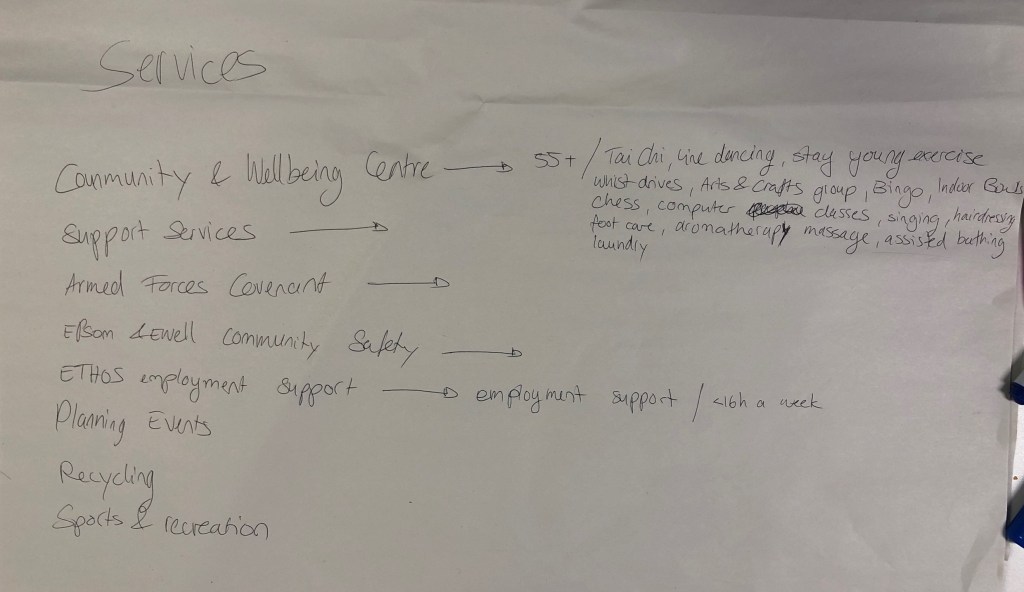 Services
Community & Wellbeing Centre → 55+ / Tai Chi, line dancing, stay young exercise
whist drives, Arts & Crafts group, Bingo, Indoor Bowls
chess, computer classes, singing, hairdressing
Support Services →
foot care, aromatherapy massage, assisted bathing
laundry
Armed Forces Covenant →
Epsom & Ewell Community Safety →
ETHOS employment support → employment support / <16h a week
Planning Events
Recycling
Sports & recreation